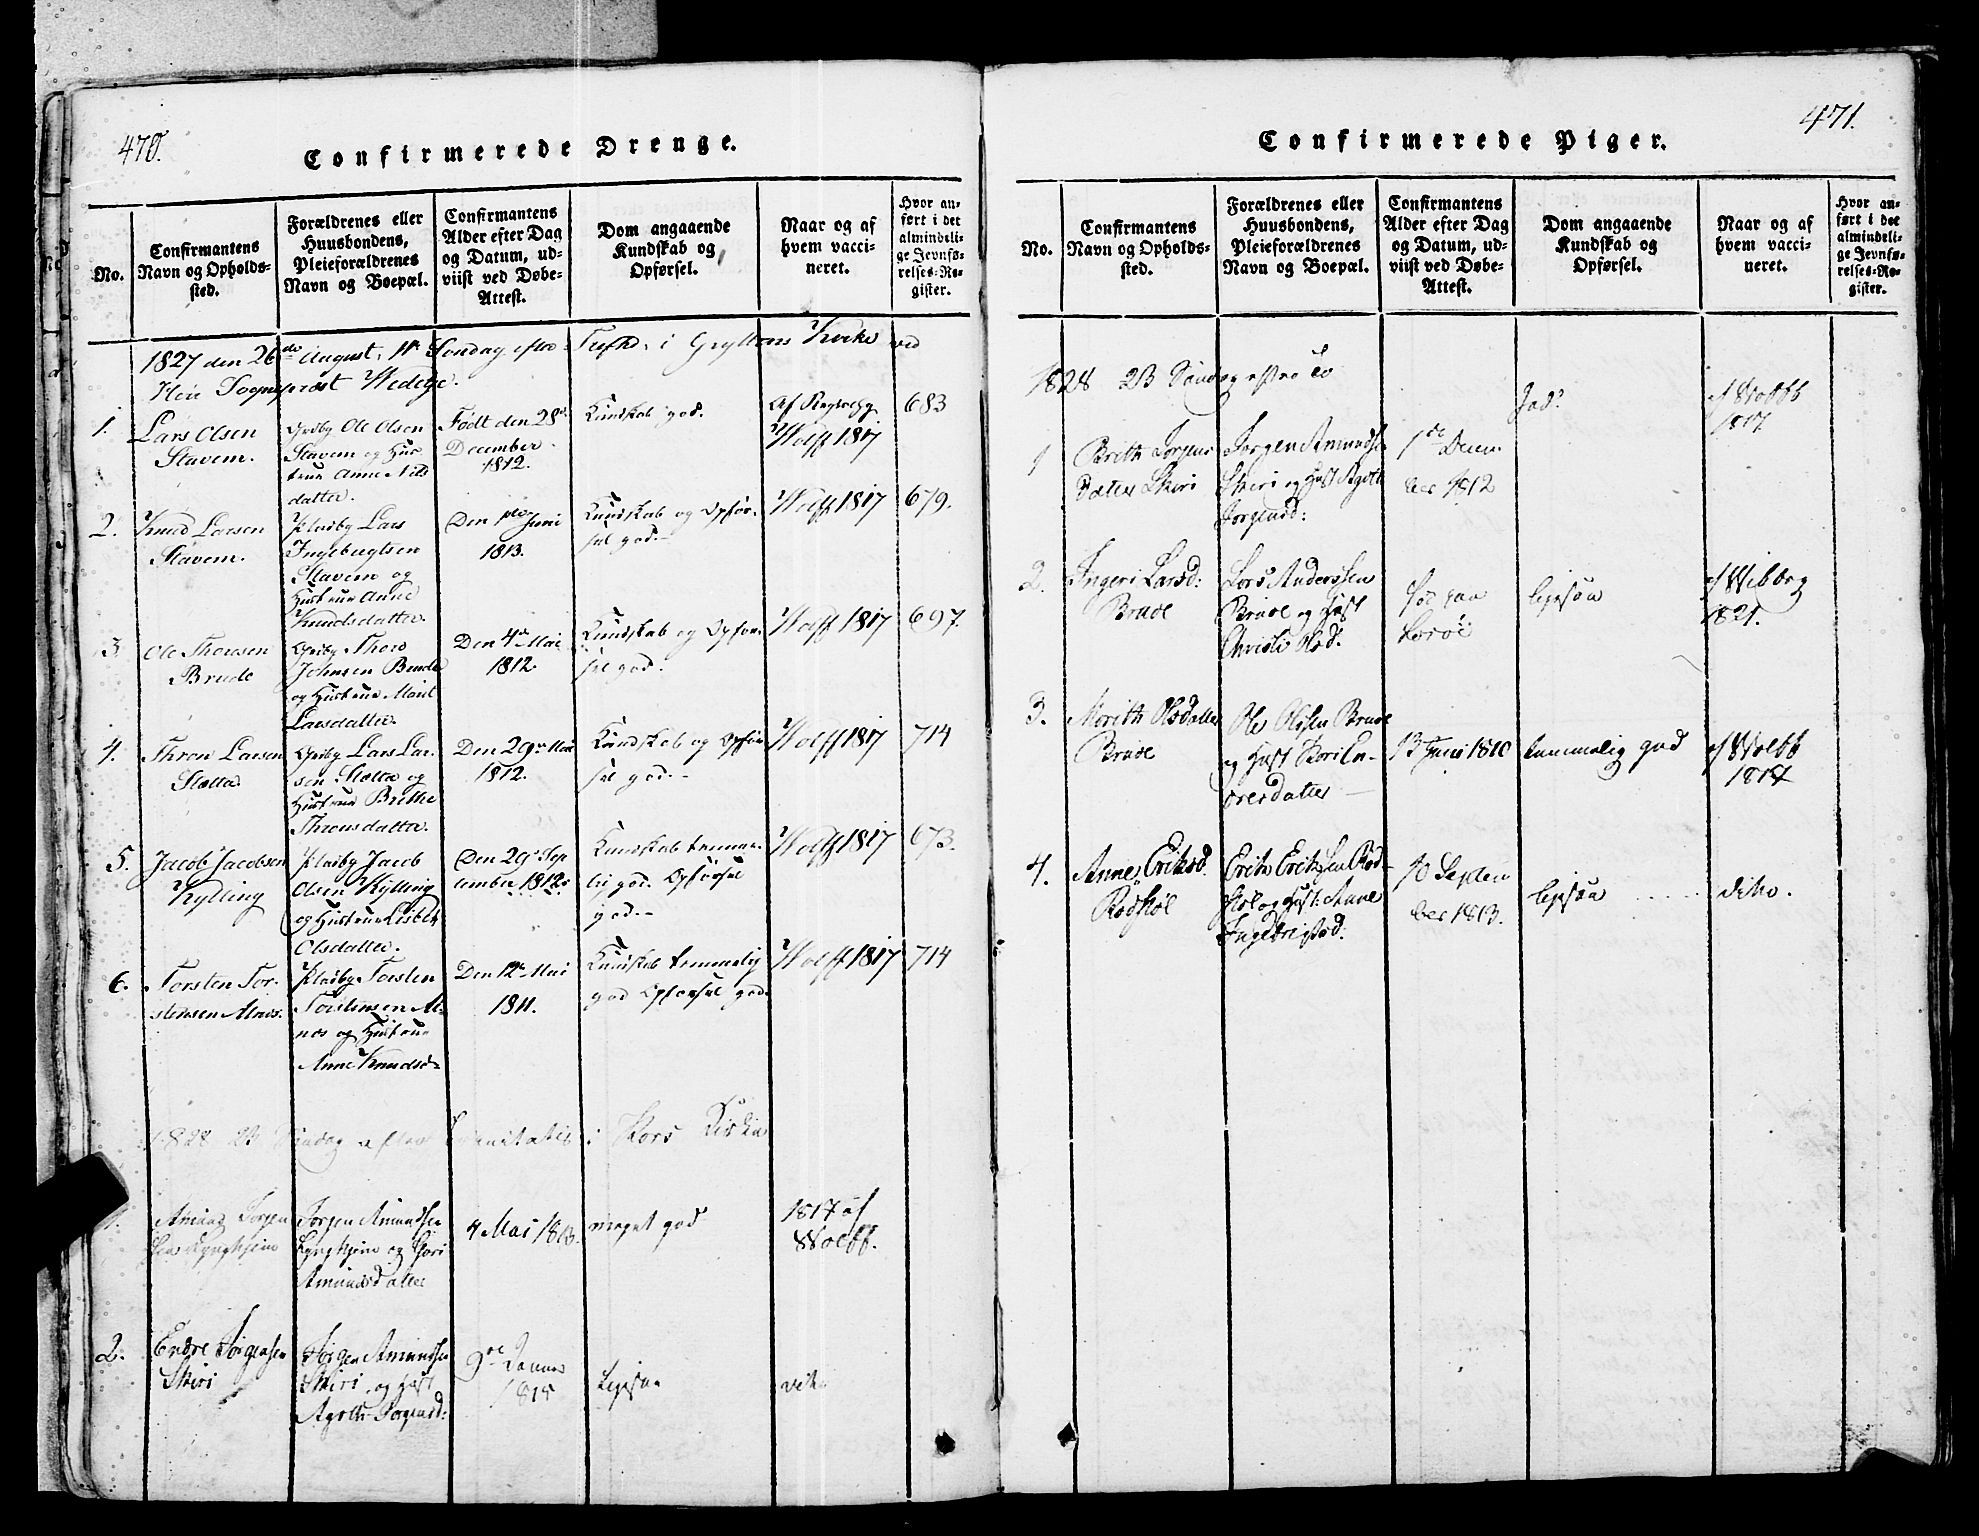 470.
Confirmerede Drenge.
No.
Confirmantens
Navn og Opholds-
sted.
Forældrenes eller
Huusbondens,
Pleieforældrenes
Navn og Boepæl.
Confirmantens
Alder efter Dag
og Datum, ud-
viist ved Døbe-
Attest.
Dom angaaende
Kundskab og
Opførsel.
Naar og af
hvem vacci-
neret.
Hvor an-
ført i det
almindeli-
ge Jevnfø-
relses-Re-
gister.
1827 den 26de August, 11 Søndag efter i Gryttens Kirke ved
Herr Sogneprest Wedege.
1.
Lars Olsen
Stavem.
Ole Olsen
Stavem og Hus-
true Anne Nils
datter.
Født den 28de
December
1812.
Kundskab god.
Af
Wolff 1817
683
2.
Knud Larsen
Stavem.
Pladsby Lars
Ingebrigtsen
Stavem og
Hustrue Anne
Knudsdatter.
Den Juni
1813.
Kundskab og Opfør-
sel god.-
Wolff 1817
679.
3.
Ole Thorsen
Brude
Thore
Johnsen Brude
og Hustrue Marit
Larsdatter.
Den 4de Mai
1812.
Kundskab og Opfør-
sel god.
Wolff 1817
697.
4.
Thron Larsen
Sletta
Lars Lar-
sen Sletta og
Hustrue Brithe
Thronsdatter.
Den 29de Mai
1812.
Kundskab og Opfør-
sel god.-
Wolff 1817
714
5.
Jacob Jacobsen
Kylling
Pladsby Jacob
Olsen Kylling
og Hustrue Lisbeth
Olsdatter.
Den 29de Sep
tember 1812.
Kundskab temme-
lig god. Opførsel
god.-
Wolff 1817
673.
6.
Torsten Tor-
stensen Alnes.
Pladsby Torsten
Torstensen Al-
nes og Hustrue
Anne Knudsd-
Den 12te Mai
1811.
Kundskab temmelig
god Opførsel god.
Wolff 1817
714
1828 23 Søndag efter Trinitatis i Kors Kirke
1.
Amund Jørgen
sen Lyngheim
Jørgen Amundsen
Lyngheim og Guri
Amundsdatter
4 Mai 1813.
meget god
1817 af
Wolff.
2.
Endre Jørgensen
Skiri
Jørgen Amundsen
Skiri, og Hust
Agethe Jørgensd:
9de Januar
1815
Ligesaa
471.
Confirmerede Piger.
No.
Confirmantens
Navn og Opholds-
sted.
Forældrenes eller
Huusbondens,
Pleieforældrenes
Navn og Boepæl.
Confirmantens
Alder efter Dag
og Datum, ud-
viist ved Døbe-
Attest.
Dom angaaende
Kundskab og
Opførsel.
Naar og af
hvem vacci-
neret.
Hvor an-
ført i det
almindeli-
ge Jevnfø-
relses-Re-
gister.
1828 23 Søndag efter
1
Brith Jørgens
datter Skiri
Jørgen Amundsen
Skiri og Hust Agethe
Jørgensd:
1de Decem
ber 1812
God?
af Wolff
1817
2.
Ingeri Larsd:
Brude
Lars Anderssen
Brude og Hust
Christi Olsd.
Ligesaa
af Wiborg
1821.
3.
Marith Olsdatter
Brude
Ole Olssen Brude
og Hust
13 Juni 1810
temmelig god
af Wolff
1817
4.
Anne Eriksd.
Rødstøl
Erik Eriksen Rød-
støl og Hust: Anne
Ingebrigtsd:
10 Septem
ber 1813.
ligesaa .....
dito.